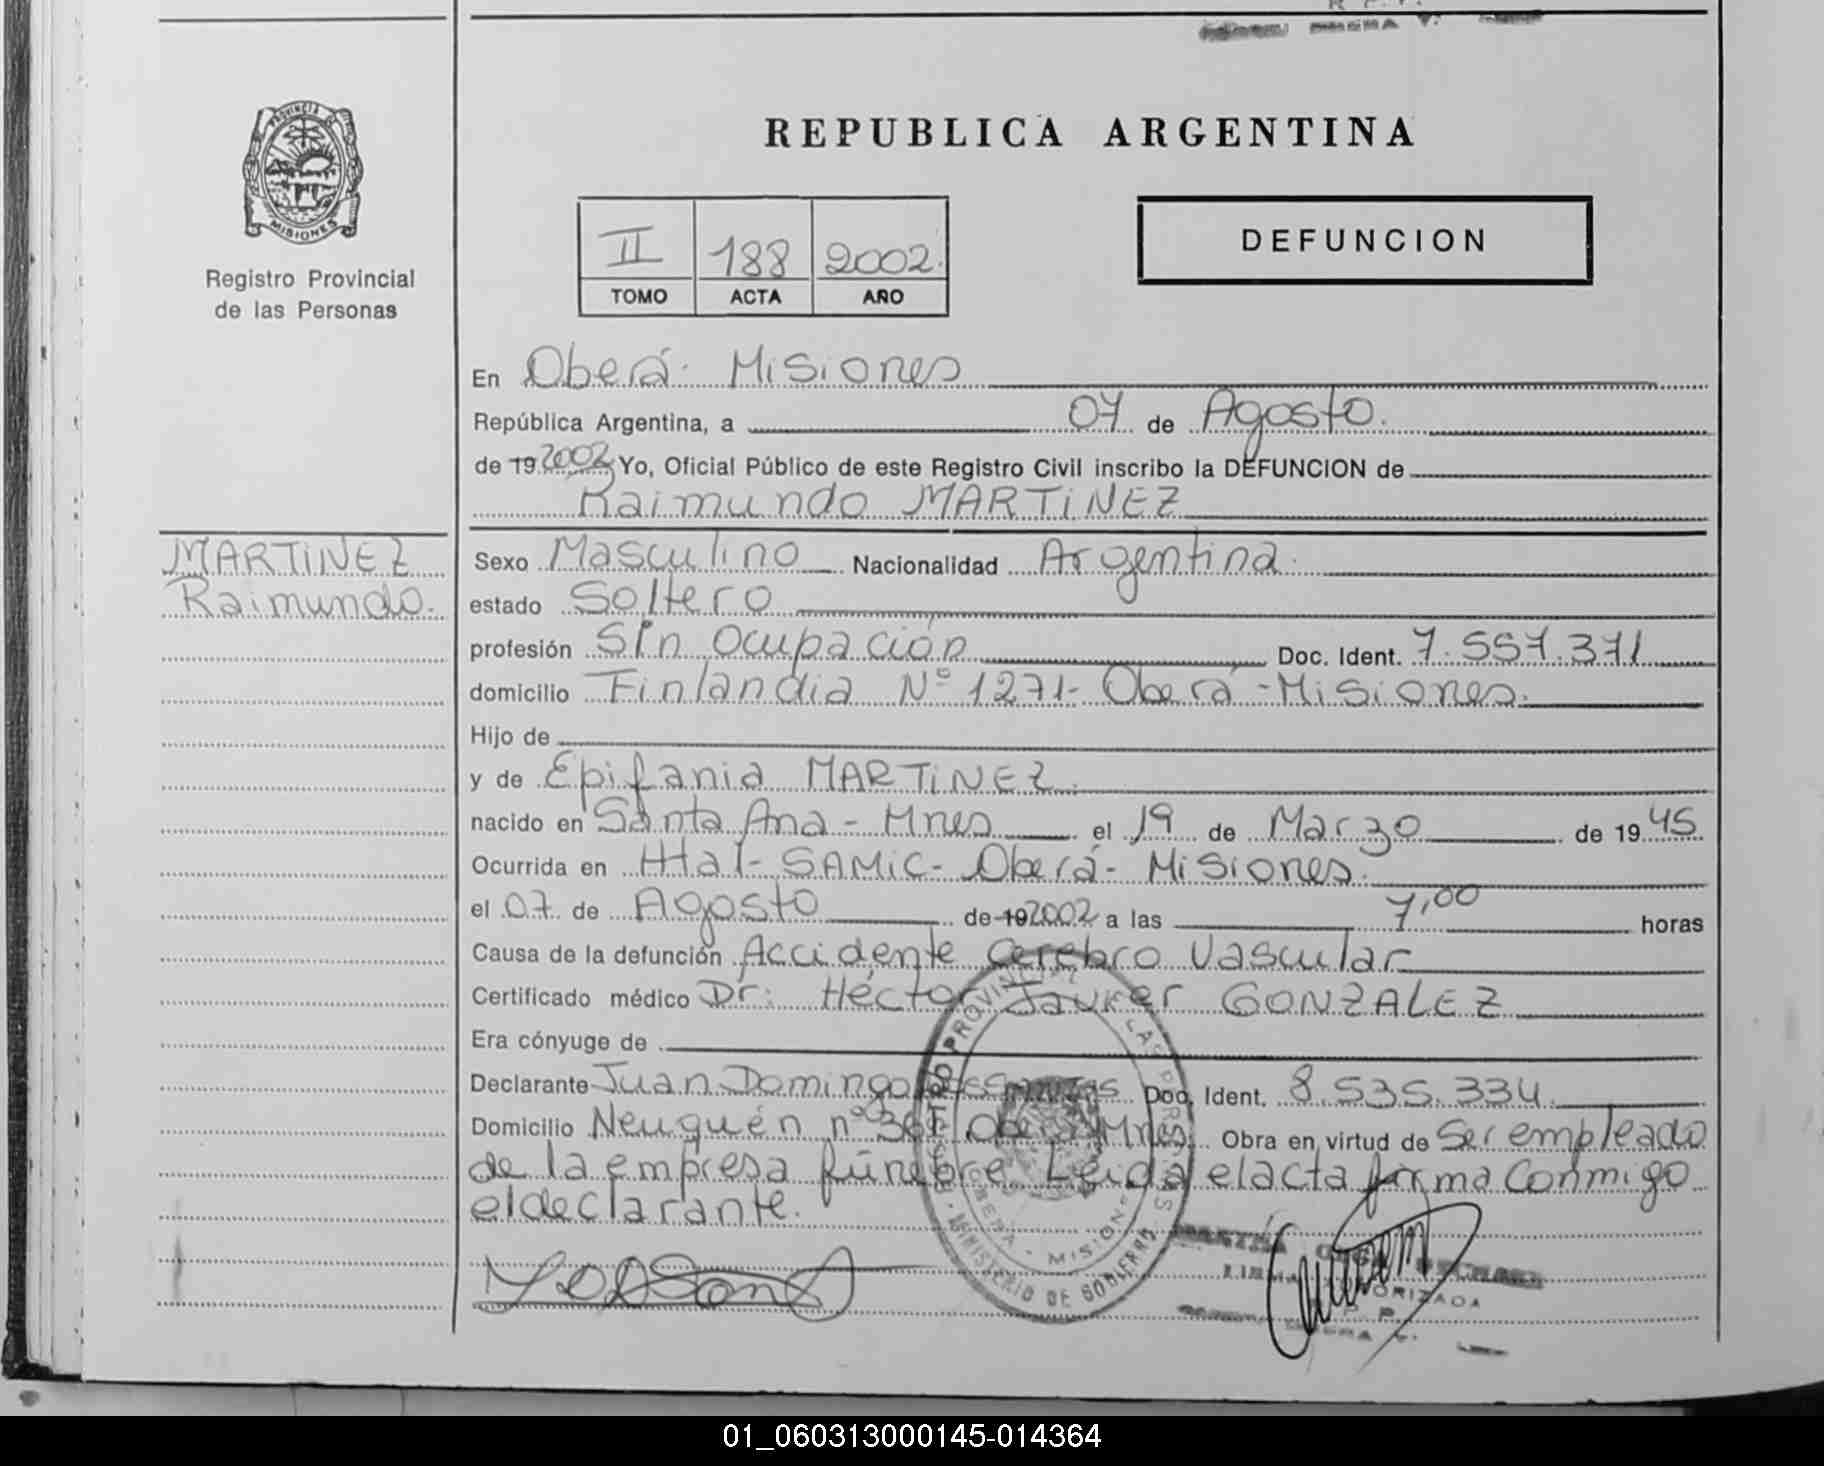 REPUBLICA ARGENTINA
PROVINCIA DE MISIONES
Registro Provincial
de las Personas
II 188 2002
TOMO ACTA AÑO
DEFUNCION
En Oberá - Misiones
República Argentina, a 07 de Agosto.
de 19 2002 Yo, Oficial Público de este Registro Civil inscribo la DEFUNCION de
Raimundo MARTINEZ
MARTINEZ
Raimundo.
Sexo Masculino Nacionalidad Argentina.
estado Soltero
profesión Sin Ocupación Doc. Ident. 7.557.371
domicilio Finlandia Nº 1271- Oberá - Misiones.
Hijo de
y de Epifania MARTINEZ.
nacido en Santa Ana - Mnes el 19 de Marzo de 19 45
Ocurrida en Htal - SAMIC - Oberá - Misiones.
el 07 de Agosto de 19 2002 a las 7,00 horas
Causa de la defunción Accidente Cerebro Vascular
Certificado médico Dr: Héctor Javier GONZALEZ
Era cónyuge de
Declarante Juan Domingo Doc. Ident. 8.535.334.
Domicilio Neuquén nº Oberá Mnes. Obra en virtud de Ser empleado
de la empresa fúnebre. Leída el acta firma Conmigo
el declarante.
REGISTRO PROVINCIAL DE LAS PERSONAS
OBERA - MISIONES
MINISTERIO DE GOBIERNO
FIRMA AUTORIZADA
R.P.P.
01_060313000145-014364